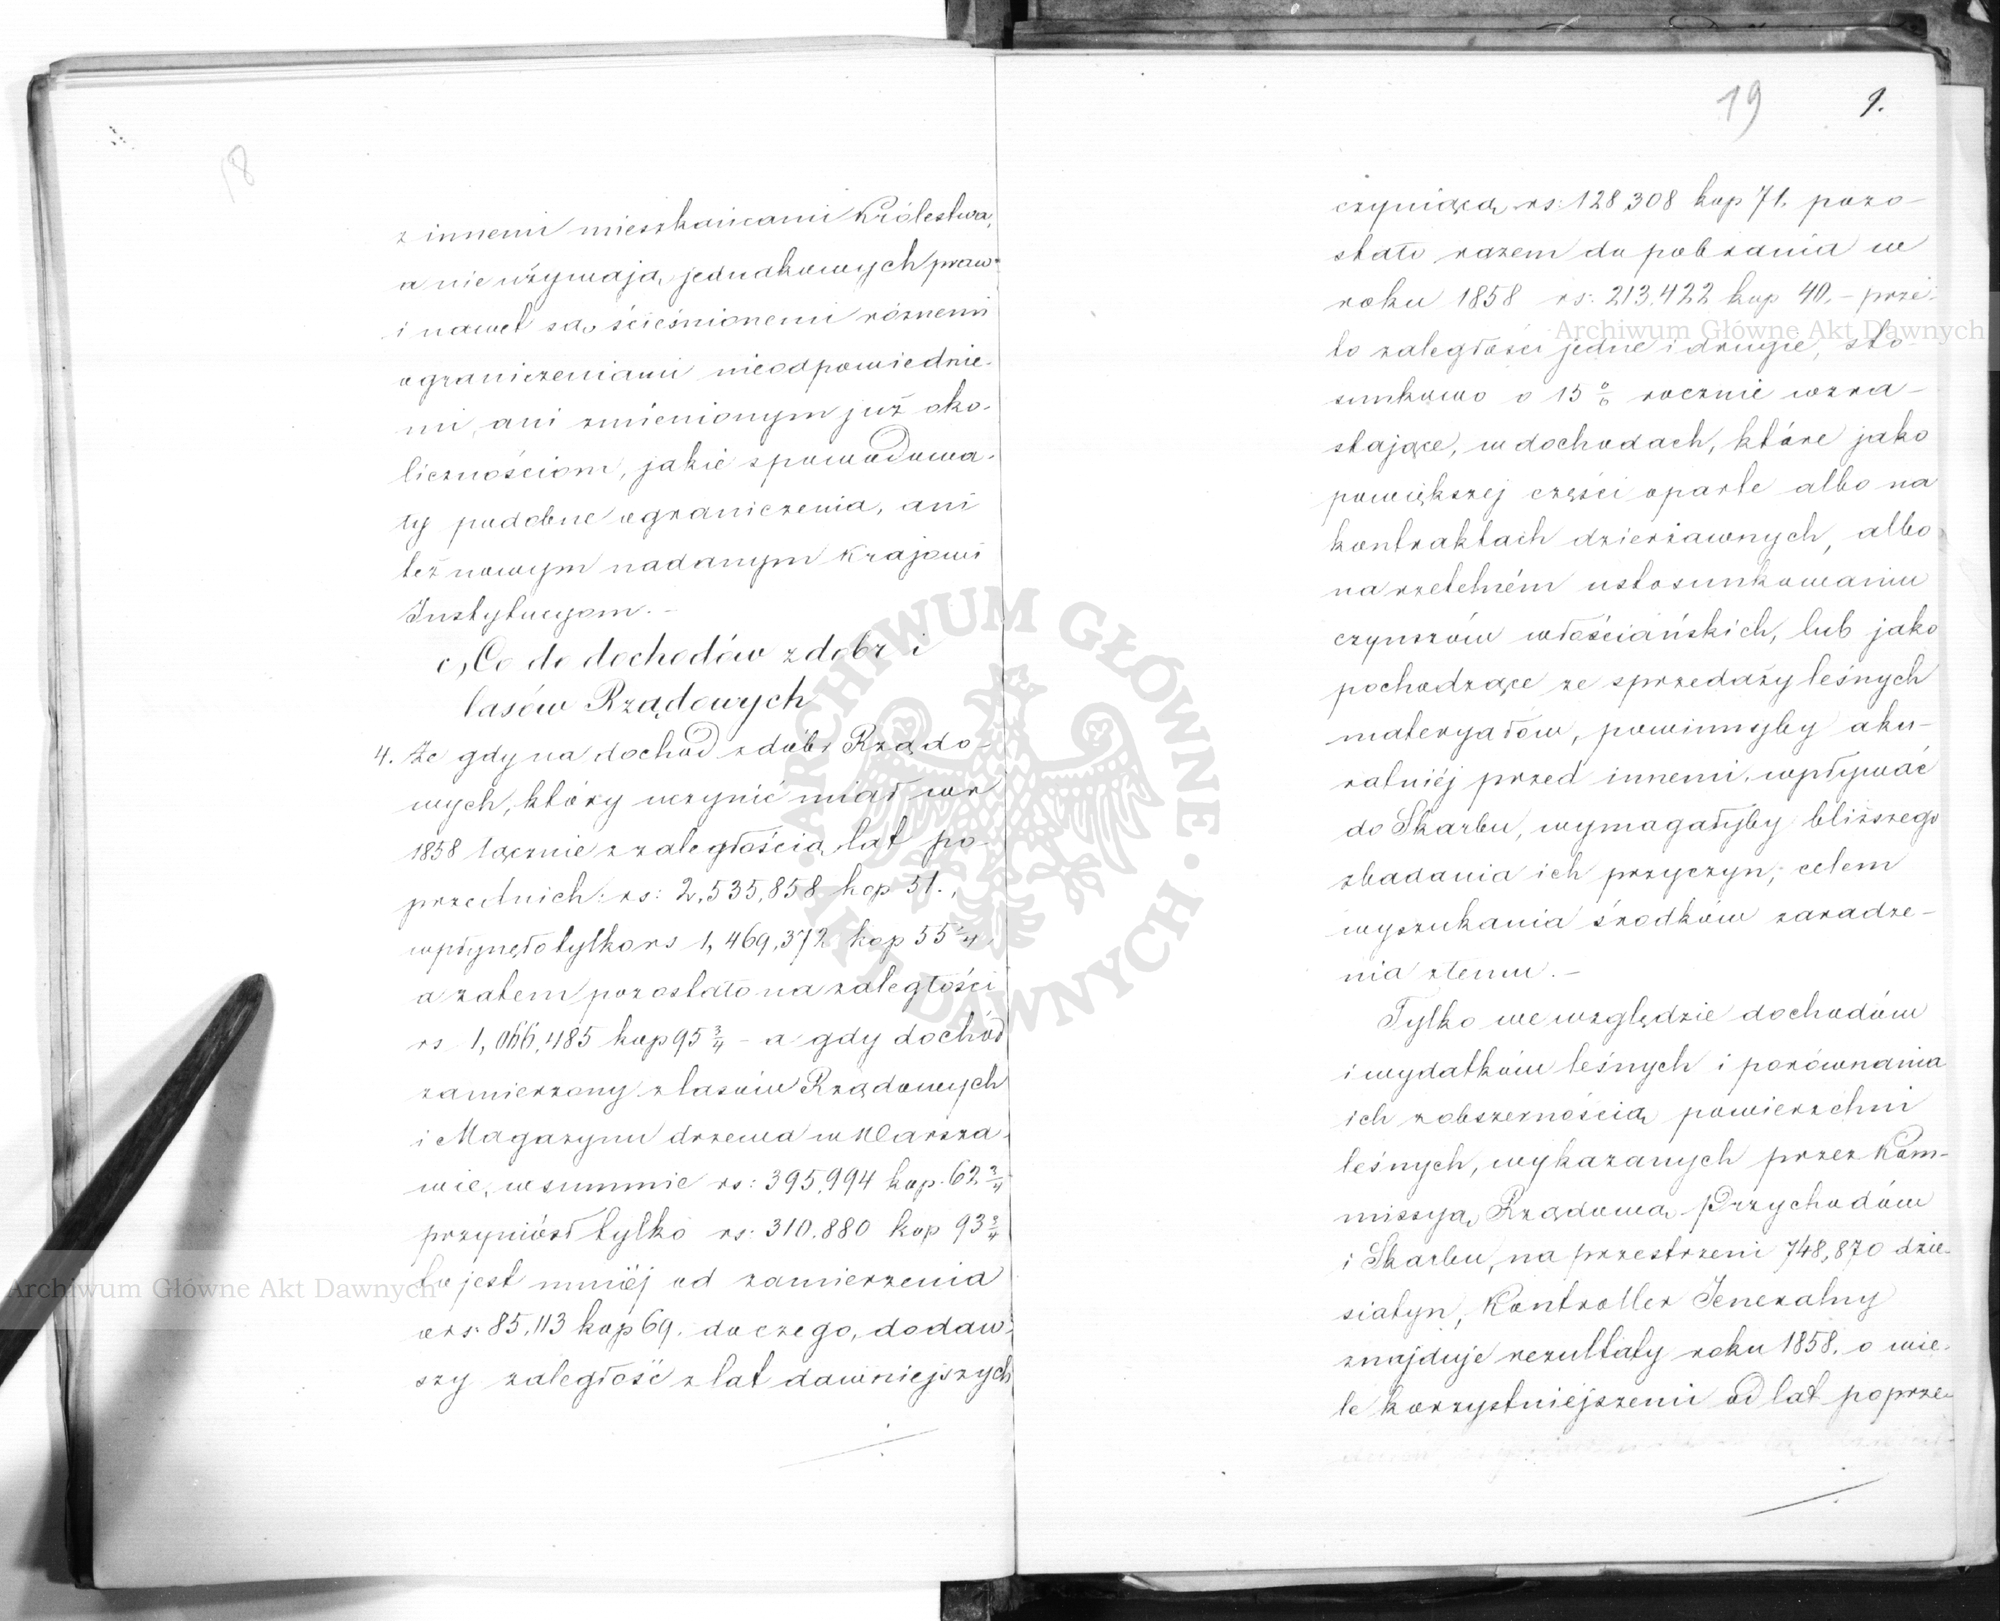 18
z innemi mieszkańcami Królestwa,
a nie używają jednakowych praw
i nawet są ścieśnionemi różnemi
ograniczeniami nieodpowiednie-
mi, ani zmienionym już oko-
licznościom, jakie spowodowa-
ły podobne ograniczenia, ani
też nowym nadanym Krajowi
Instytucyom. -
c, Co do dochodów z dobr i
lasów Rządowych
4. Że gdy na dochód z dóbr Rządo-
wych, który uczynić miał w r
1858 łącznie z zaległością lat po-
przednich: rs: 2,535,858 kop 51.,
wpłynęło tylko rs 1,469,372 kop 55 1/4,
a zatem pozostało na zaległości
rs 1,066,485 kop 95 3/4 - a gdy dochód
zamierzony z lasów Rządowych
i Magazynu drzewa w Warsza-
wie, w summie rs: 395,994 kop. 62 3/4
przyniósł tylko rs: 310.880 kop 93 3/4
to jest mniéj od zamierzenia
o rs: 85,113 kop 69. do czego, dodaw-
szy zaległość z lat dawniejszych
19 9.
czyniącą rs: 128,308 kop 71. pozo-
stało razem do pobrania w
roku 1858 rs: 213.422 kop 40. - prze-
to zaległości jedne i drugie, sto-
sunkowo o 15 % rocznie wzra-
stające, w dochodach, które jako
powiększej części oparte albo na
kontraktach dzierżawnych, albo
na rzetelném ustosunkowaniu
czynszów włościańskich, lub jako
pochodzące ze sprzedaży leśnych
materyałów, powinnyby aku-
ratniéj przed innemi, wpływać
do Skarbu, wymagałyby bliższego
zbadania ich przyczyn, celem
wyszukania środków zaradze-
nia złemu. -
Tylko we względzie dochodów
i wydatków leśnych i porównania
ich z obszernością powierzchni
leśnych, wykazanych przez Kom-
missyą Rządową Przychodów
i Skarbu, na przestrzeni 748,870 dzie-
siatyn, Kontroller Jeneralny
znajduje rezultaty roku 1858. o wie-
le korzystniejszemi od lat poprze-
ARCHIWUM GŁÓWNE AKT DAWNYCH
Archiwum Główne Akt Dawnych
Archiwum Główne Akt Dawnych